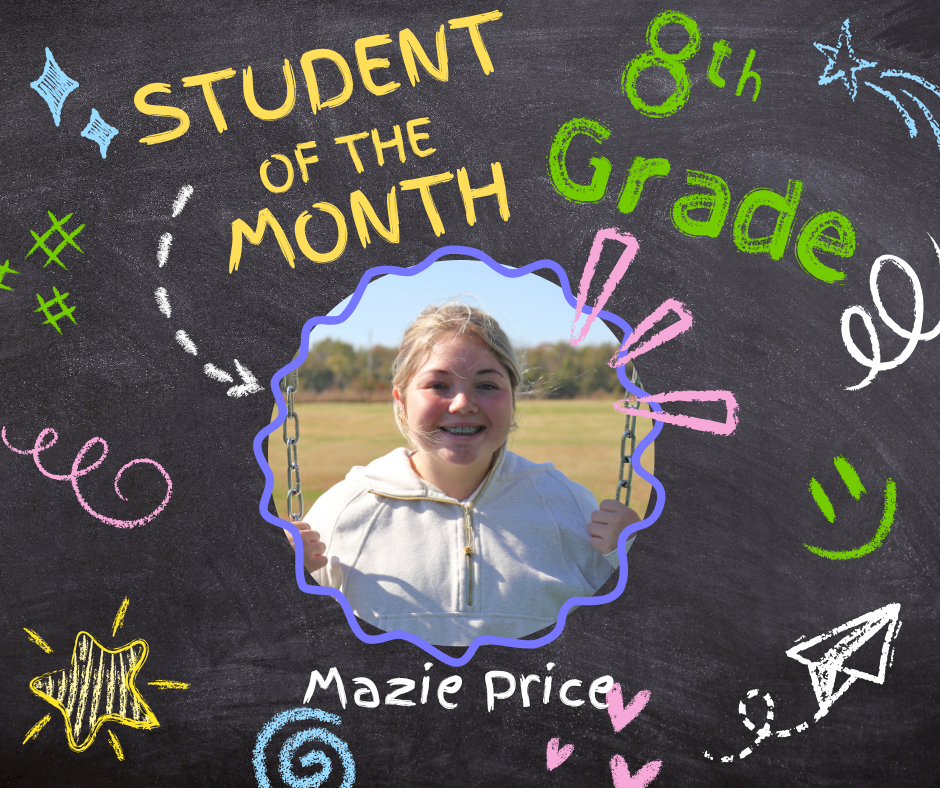 STUDENT
OF THE
MONTH
8th
Grade
Mazie Price